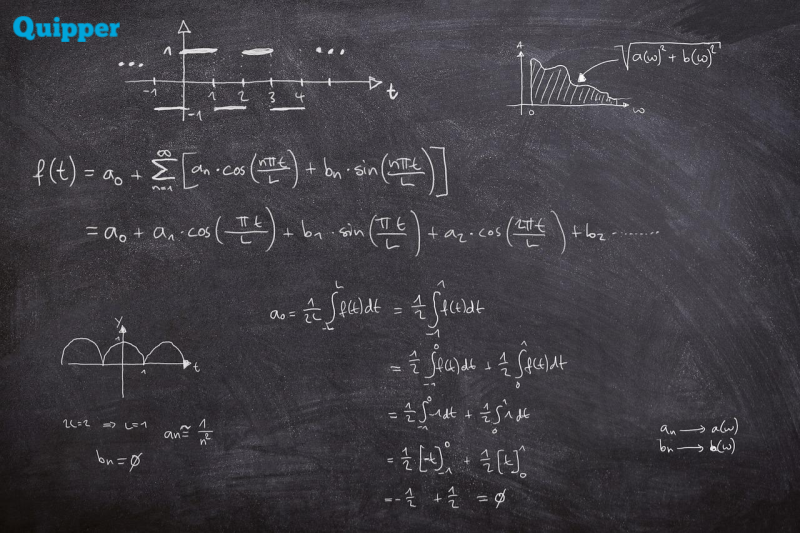 Quipper
1
... ...
-1 1 2 3 4 t
-1
A
√(a(ω)² + b(ω)²)
0 ω
f(t) = a₀ + ∞∑n=1 [aₙ · cos(nπt/L) + bₙ · sin(nπt/L)]
= a₀ + a₁ · cos(πt/L) + b₁ · sin(πt/L) + a₂ · cos(2πt/L) + b₂ ........
a₀ = 1/2L ∫_-L^L f(t)dt = 1/2 ∫_-1^1 f(t)dt
= 1/2 ∫_-1^0 f(t)dt + 1/2 ∫_0^1 f(t)dt
= 1/2 ∫_-1^0 -1dt + 1/2 ∫_0^1 1dt
= 1/2 [-t]_-1^0 + 1/2 [t]_0^1
= -1/2 + 1/2 = ∅
y
1
1 t
2L=2 ⇒ L=1
aₙ ≅ 1/n²
bₙ = ∅
aₙ → a(ω)
bₙ → b(ω)